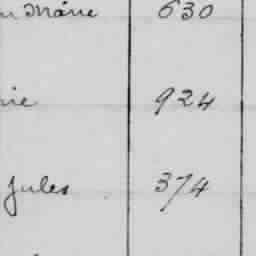 Marie 630
924
Jules 374